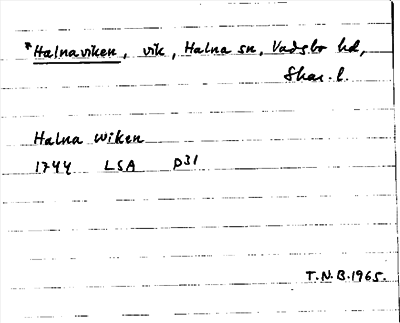 *Halnaviken, vik, Halna sn, Vadsbo hd,
Skar. l.
Halna Wiken
1744 LSA P31
T.N.B. 1965.